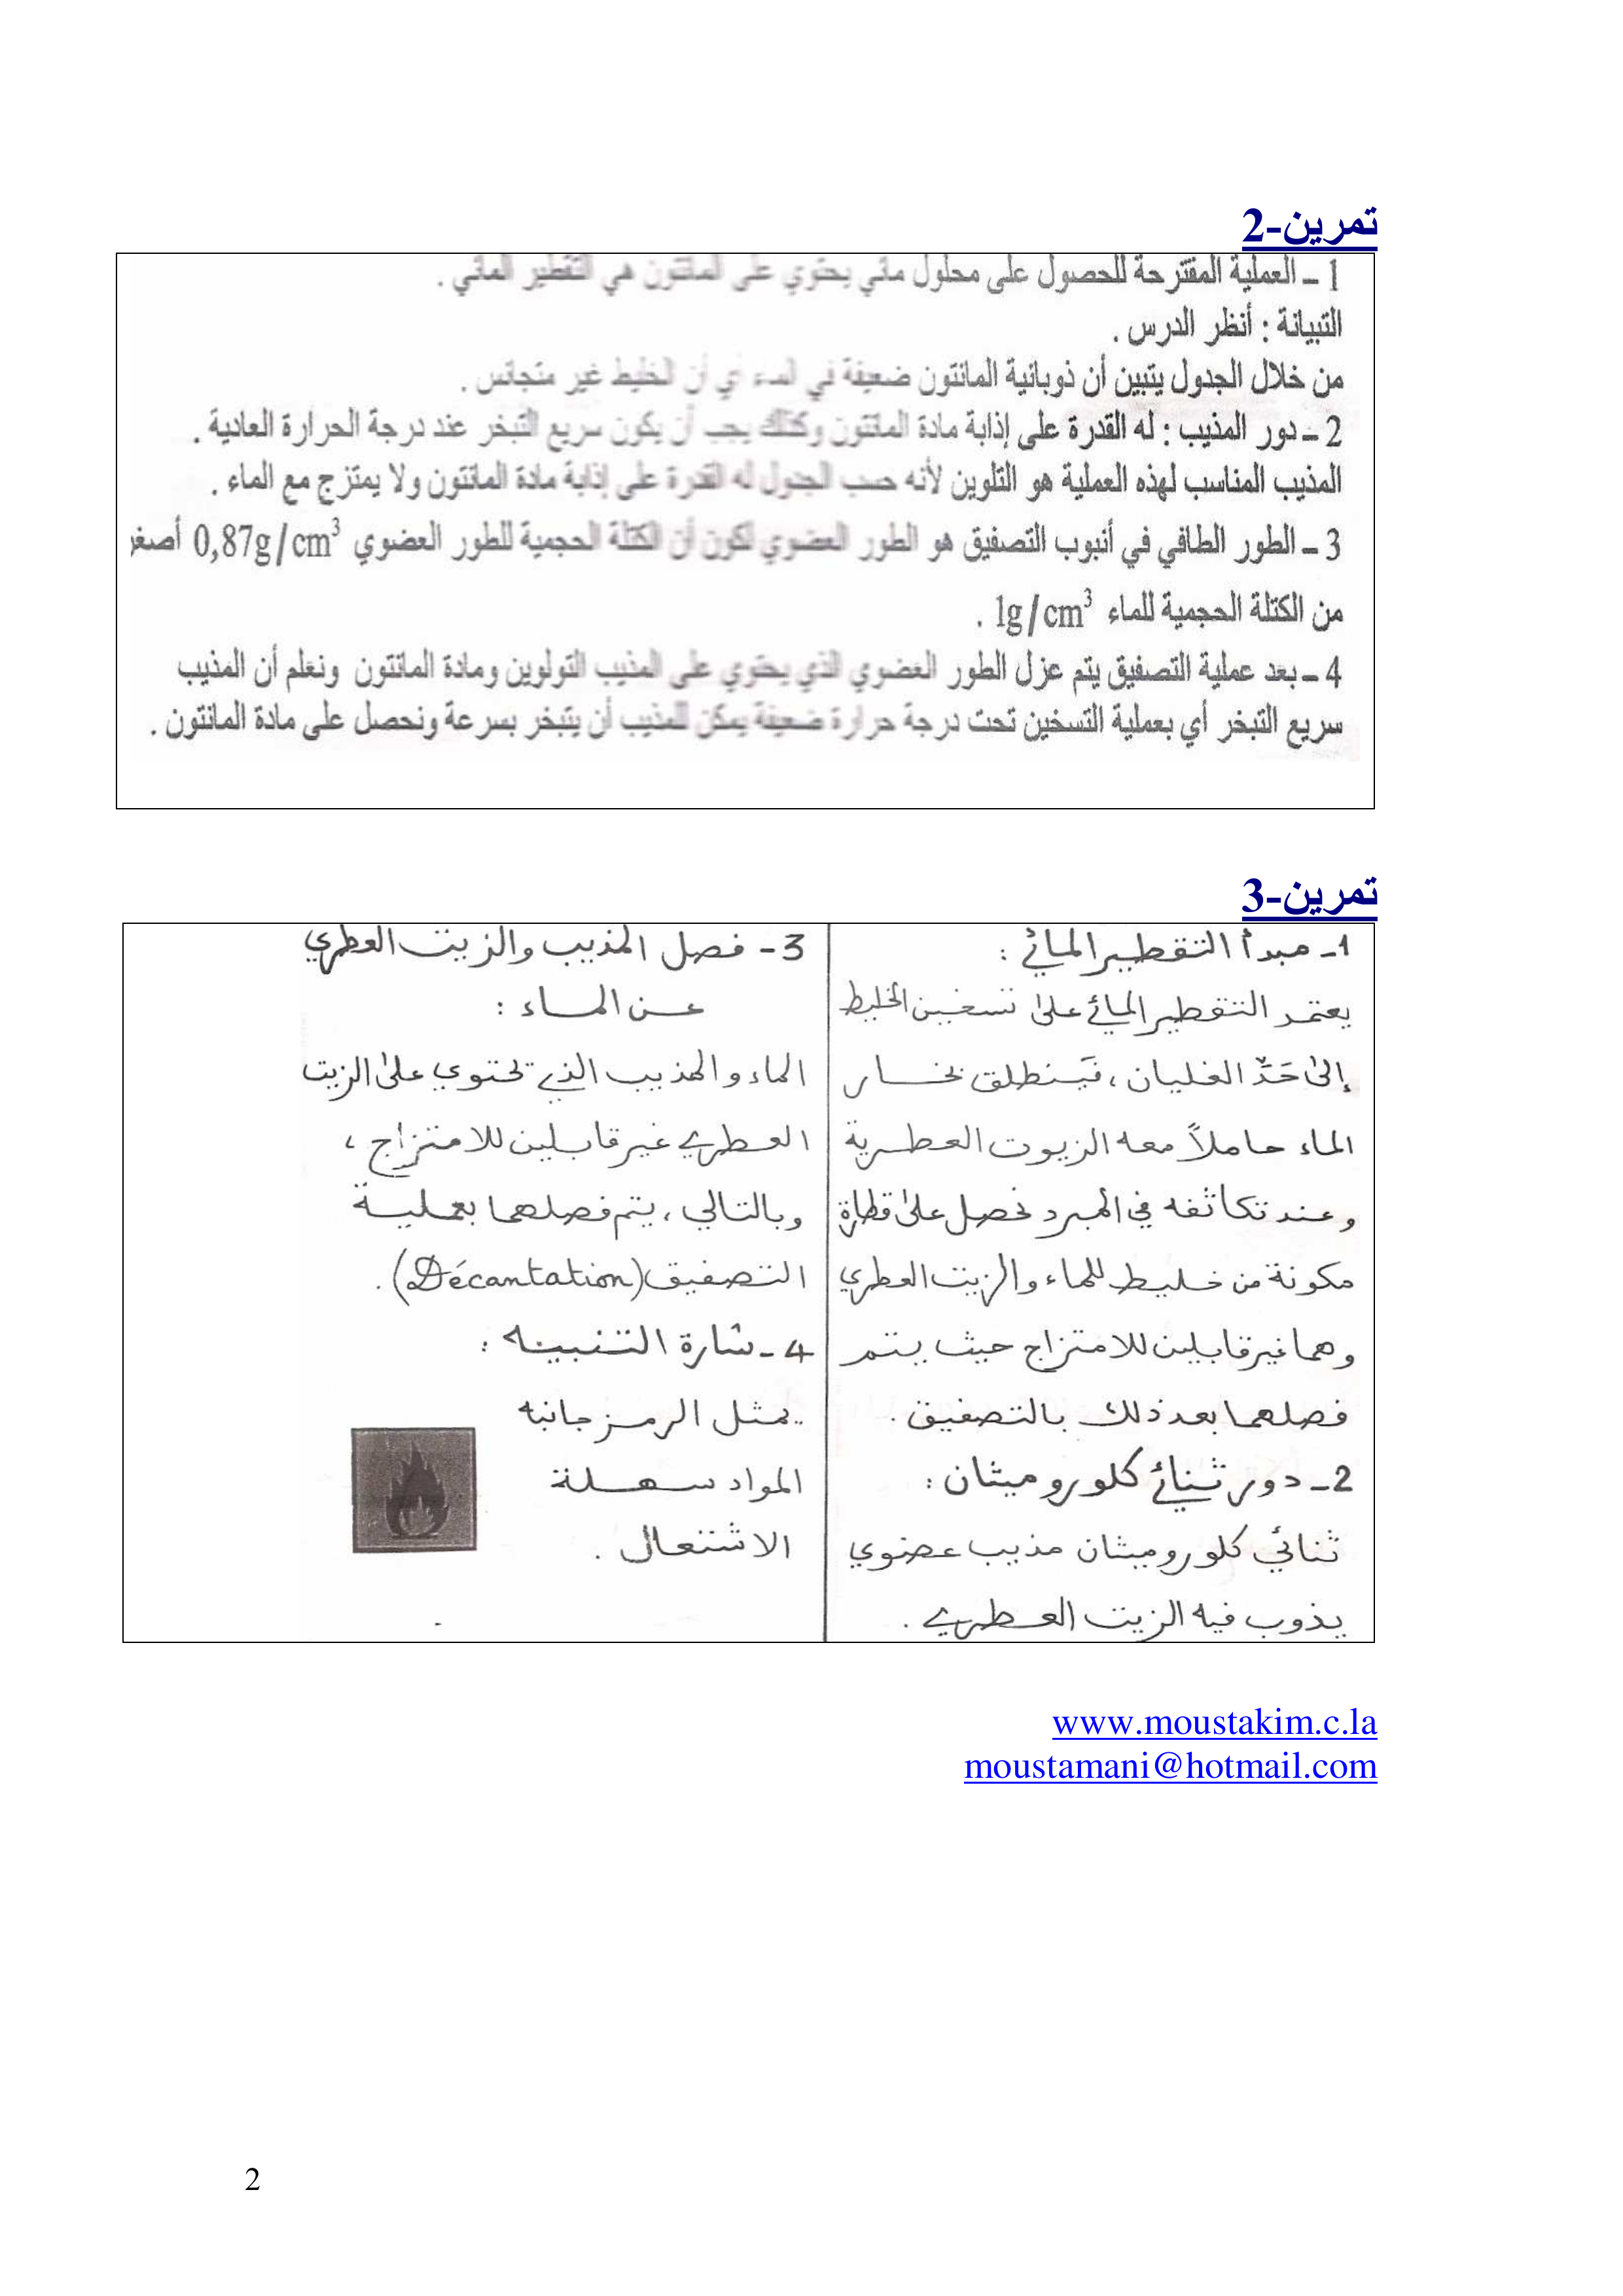 تمرين-2
1 – العملية المقترحة للحصول على محلول مائي يحتوي على المانتون هي التقطير المائي .
التبيانة : أنظر الدرس .
من خلال الجدول يتبين أن ذوبانية المانتون ضعيفة في الماء أي أن الخليط غير متجانس .
2 – دور المذيب : له القدرة على إذابة مادة المانتون وكذلك يجب أن يكون سريع التبخر عند درجة الحرارة العادية .
المذيب المناسب لهذه العملية هو التلوين لأنه حسب الجدول له القدرة على إذابة مادة المانتون ولا يمتزج مع الماء .
3 – الطور الطافي في أنبوب التصفيق هو الطور العضوي لكون أن الكتلة الحجمية للطور العضوي 0,87g/cm³ أصغر
من الكتلة الحجمية للماء 1g/cm³ .
4 – بعد عملية التصفيق يتم عزل الطور العضوي الذي يحتوي على المذيب التولوين ومادة المانتون ونعلم أن المذيب
سريع التبخر أي بعملية التسخين تحت درجة حرارة ضعيفة يمكن للمذيب أن يتبخر بسرعة ونحصل على مادة المانتون .
تمرين-3
1- مبدأ التقطير المائي :
يعتمد التقطير المائي على تسخين الخليط
إلى حَدِّ الغليان ، فَيَنطلق بخار
الماء حاملاً معه الزيوت العطرية
وعند تكاثفه في المبرد نحصل على قطارة
مكونة من خليط للماء والزيت العطري
وهما غير قابلين للامتزاج حيث يتم
فصلهما بعد ذلك بالتصفيق .
2- دور ثنائي كلوروميثان :
ثنائي كلوروميثان مذيب عضوي
يذوب فيه الزيت العطري .
3- فصل المذيب والزيت العطري
عن الماء :
الماء والمذيب الذي تحتوي على الزيت
العطري غير قابلين للامتزاج ،
وبالتالي ، يتم فصلهما بعملية
التصفيق (Décantation) .
4- شارة التنبيه :
يمثل الرمز جانبه
المواد سهلة
الاشتعال .
www.moustakim.c.la
moustamani@hotmail.com
2